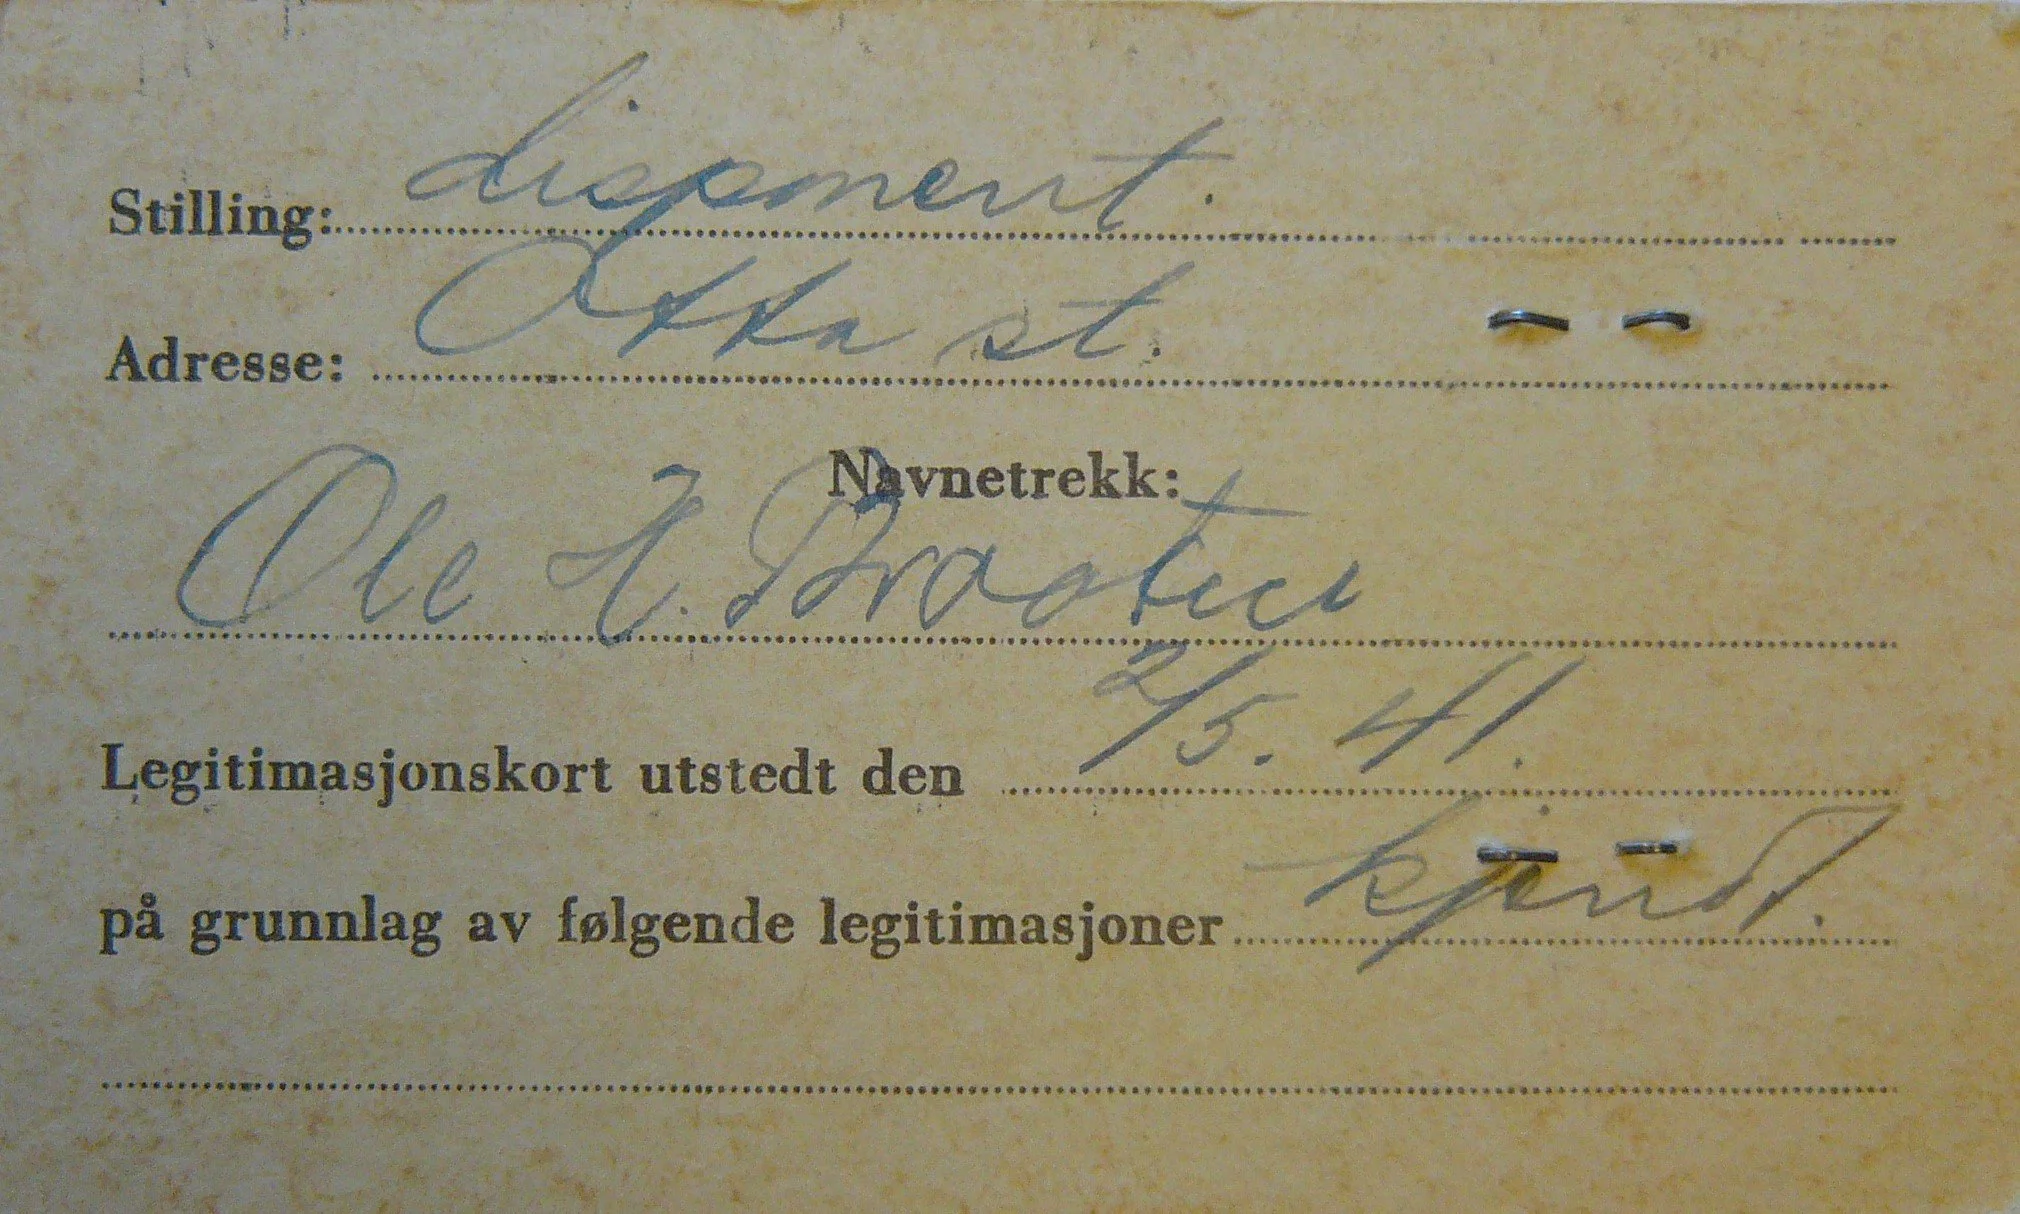 Stilling: disponent.
Adresse: Otta st.
Navnetrekk:
Ole H. Braaten
Legitimasjonskort utstedt den 2/5. 41.
på grunnlag av følgende legitimasjoner kjendt.